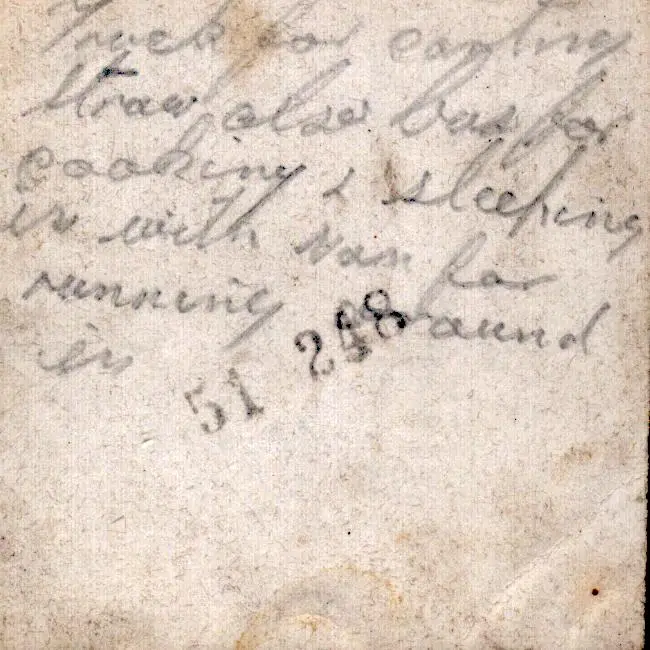 Truck for carting
straw, also bus for
cooking & sleeping
in with van for
running around
in
51 248